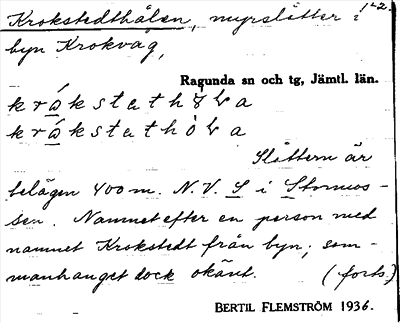 Krokstedthålen, myrslåtter i 1-2.
byn Krokvåg,
Ragunda sn och tg, Jämtl. län.
Slåttern är
belägen 400 m. N.V. S i Stormos-
sen. Namnet efter en person med
namnet Krokstedt från byn; som-
manhanget dock okänt. (forts.)
BERTIL FLEMSTRÖM 1936.